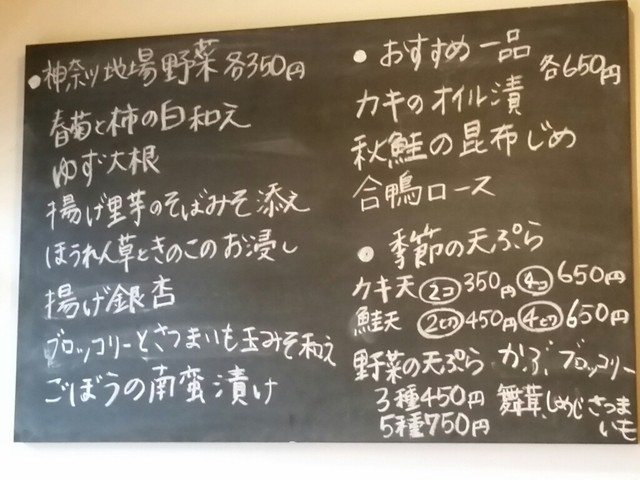 ●神奈川地場野菜各350円
春菊と柿の白和え
ゆず大根
揚げ里芋のそばみそ添え
ほうれん草ときのこのお浸し
揚げ銀杏
ブロッコリーとさつまいも玉みそ和え
ごぼうの南蛮漬け
●おすすめ一品
各650円
カキのオイル漬
秋鮭の昆布じめ
合鴨ロース
●季節の天ぷら
カキ天 2コ 350円 4コ 650円
鮭天 2切 450円 4切 650円
野菜の天ぷら かぶ、ブロッコリー
3種450円 舞茸、しめじ、さつま
5種750円 いも